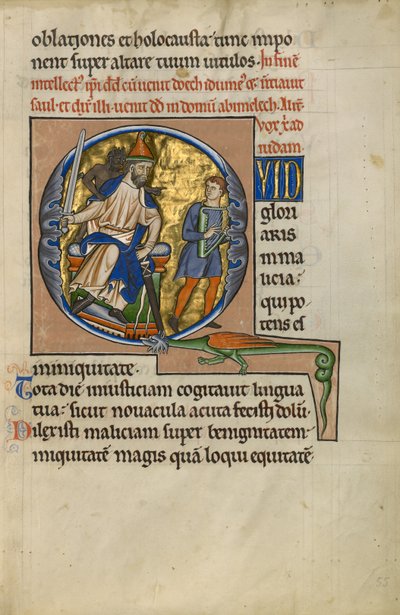 oblationes et holocausta· tunc impo
nent super altare tuum uitulos· In finē
intellect' ip̄i dd̄ cū uenit doech idume' & n̄tiauit
saul· et dix̄ illi· uenit dd̄ in domū abimelech·
Vox xp̄i ad
iudam
QVID
glori
aris
in ma
licia·
qui po
tens es
in iniquitate·
Tota diē iniusticiam cogitauit lingua
tua· sicut nouacula acuta fecisti dolū·
Dilexisti maliciam super benignitatem·
iniquitatē magis quā loqui equitatē·
55